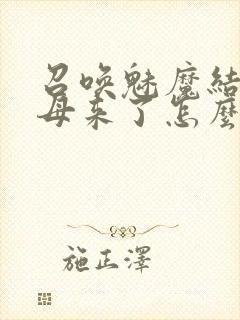 召唤魅魔結
母来了怎麼
施正澤